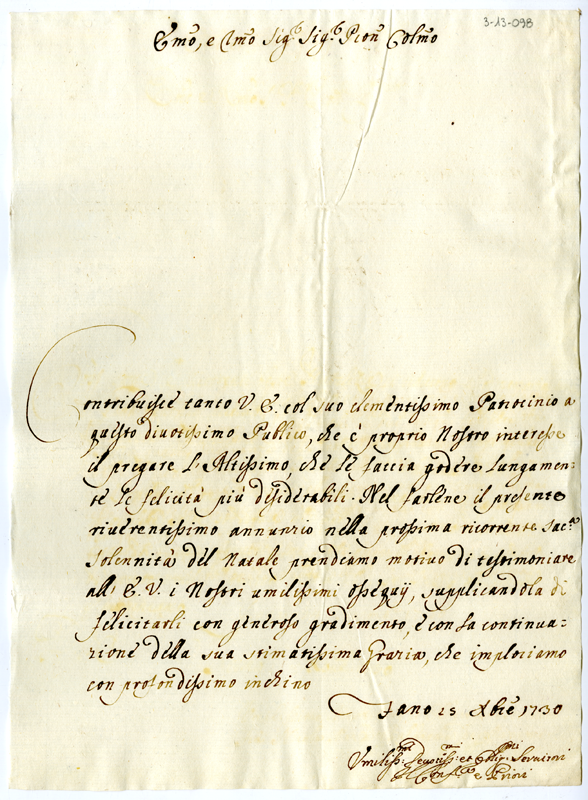 3-13-098
Emo, e Rmo Sigr. Sigr. Pron. Colmo
Contribuisce tanto V. E. col suo clementissimo Patrocinio a
questo divotissimo Publico, che è proprio Nostro interesse
il pregare l'Altissimo, che le faccia godere lungamen-
te le felicità più desiderabili. Nel farlene il presente
riverentissimo annunzio nella prossima ricorrente Sacra
Solennità del Natale prendiamo motivo di testimoniare
all' E. V. i Nostri umilissimi ossequij, supplicandola di
felicitarli con generoso gradimento, e con la continua=
zione della sua stimatissima Grazia, che imploriamo
con profondissimo inchino
Fano 15 Xbre 1730
Umilissmi Devotissmi et Obligmi Servitori
Il Confre e Priori